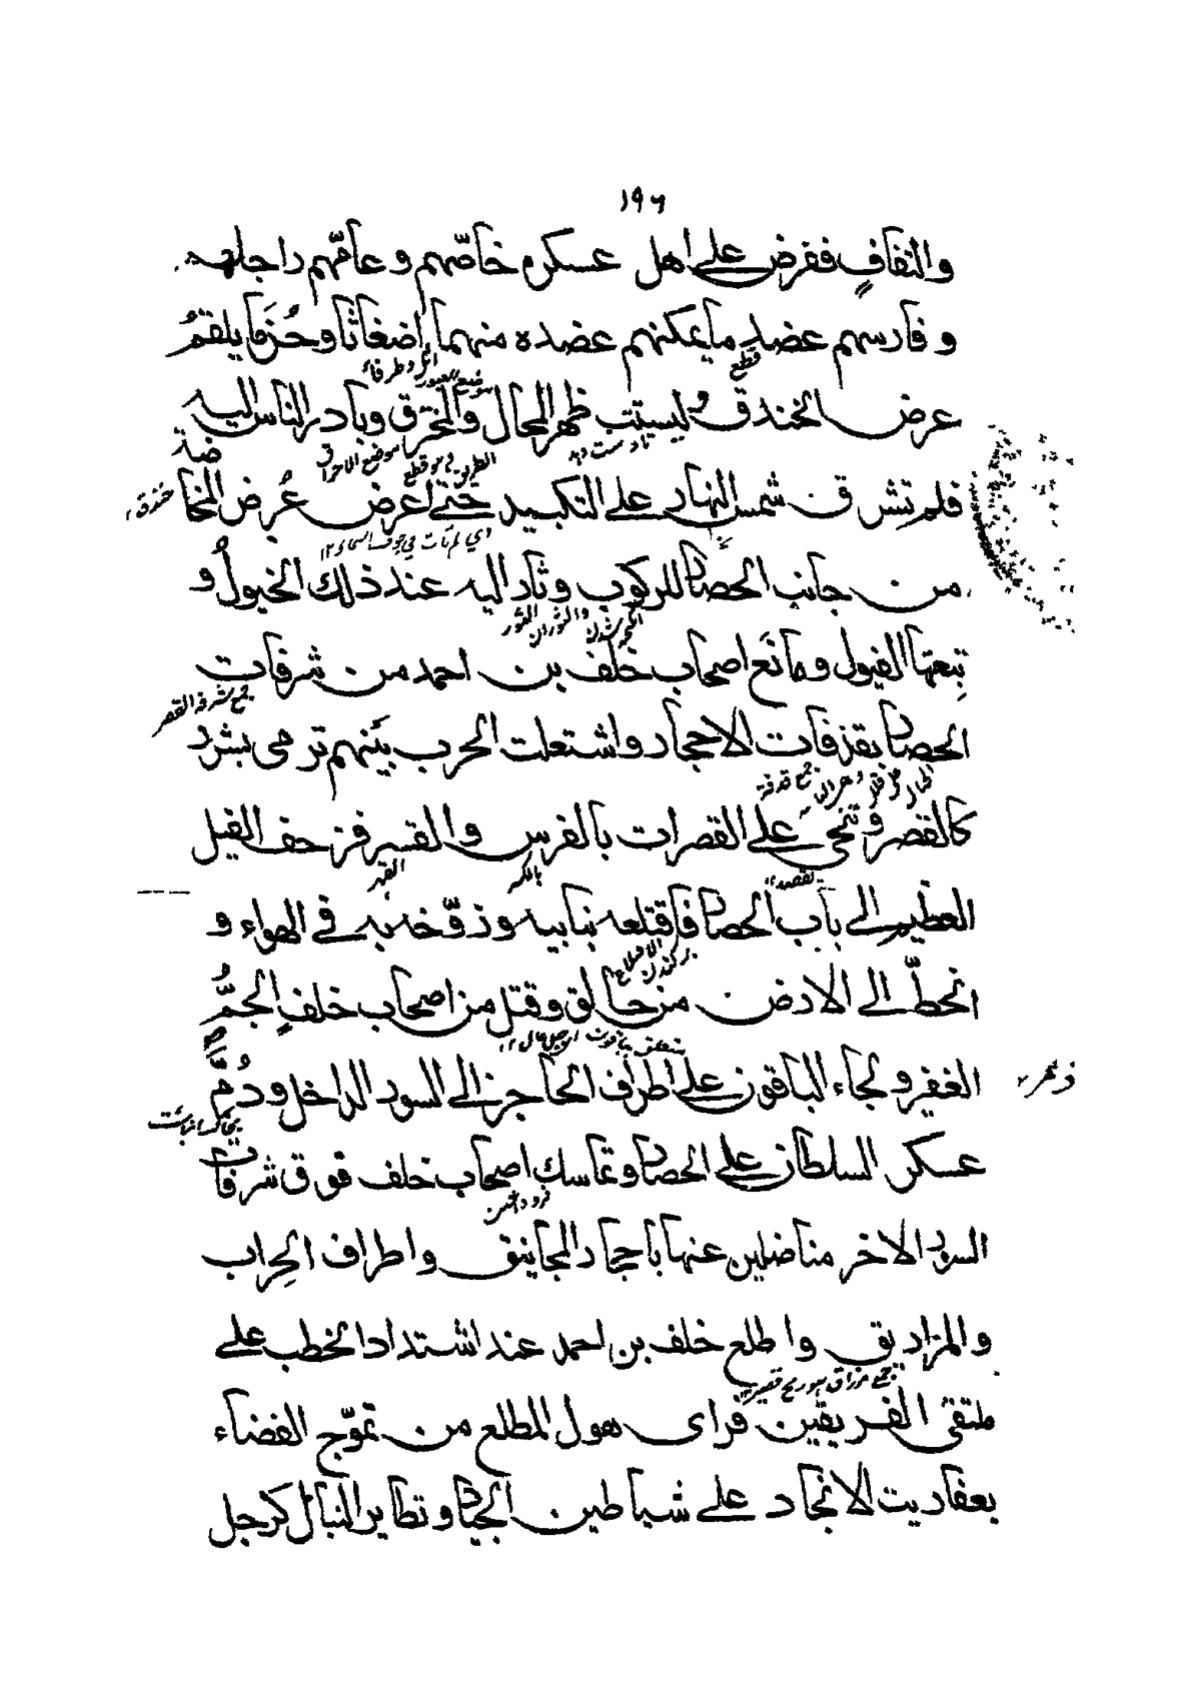 ١٩٦
والتفافٍ ففرض على اهل عسكره خاصّهم وعامّهم راجلهم
وفارسهم عضد ما يمكنهم عضده منهما اضغاثا وحُزَما يلقمُ
قطع
اثل وطرفاء
عرض الخندق وليستتب ظهر المجال والمخترق وبادر الناس اليه
موضع العبور
فلم تشرق شمس النهار على التكبيد حتى اعرض عُرض المخاضة
موضع الاختراق
خندق
من جانب الحصار للركوب وثار اليه عند ذلك الخيولُ و
تبِعتها الفيول ومانَع اصحاب خلف بن احمد من شرفات
والثوران
جمع شرفة القصر
الحصار بقذفات الاحجار واشتعلت الحرب بينهم ترمى بشرر
جمع قذفة
كالقصر وتنحى على القصرات بالفرس والقسر فزحف الفيل
تقصد
بالكسر
القهر
العظيم الى باب الحصار فاقتلعه بنابيه وزوّخه به فى الهواء و
بركندن
انحطّ الى الارض من حالق وقتل من اصحاب خلفٍ الجمُّ
الغفير ولجاء الباقون على اطراف الحاجز الى السور الداخل ودُمّر
عسكر السلطان على الحصار وتماسك اصحاب خلف فوق شرفات
السور الاخر مناضلين عنها باحجار المجانيق واطراف الحِراب
والمزاريق واطلع خلف بن احمد عند اشتداد الخطب على
جمع مزراق
ملتقى الفريقين فراى هول المطلع من تموّج الفضاء
بعفاريت الانجاد على شياطين الجياد وتطاير النبال كرجل